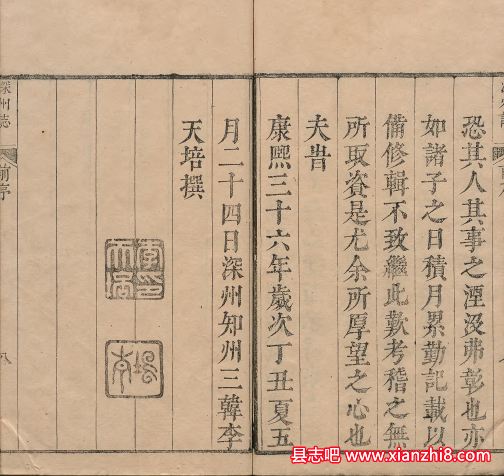 恐其人其事之湮沒弗彰也亦
如諸子之日積月累勤記載以
備修輯不致繼此歎考稽之無
所取資是尤余所厚望之心也
夫旹
康熙三十六年歲次丁丑夏五
月二十四日深州知州三韓李
天培撰
深州志
前序
八
县志吧 www.xianzhi8.com